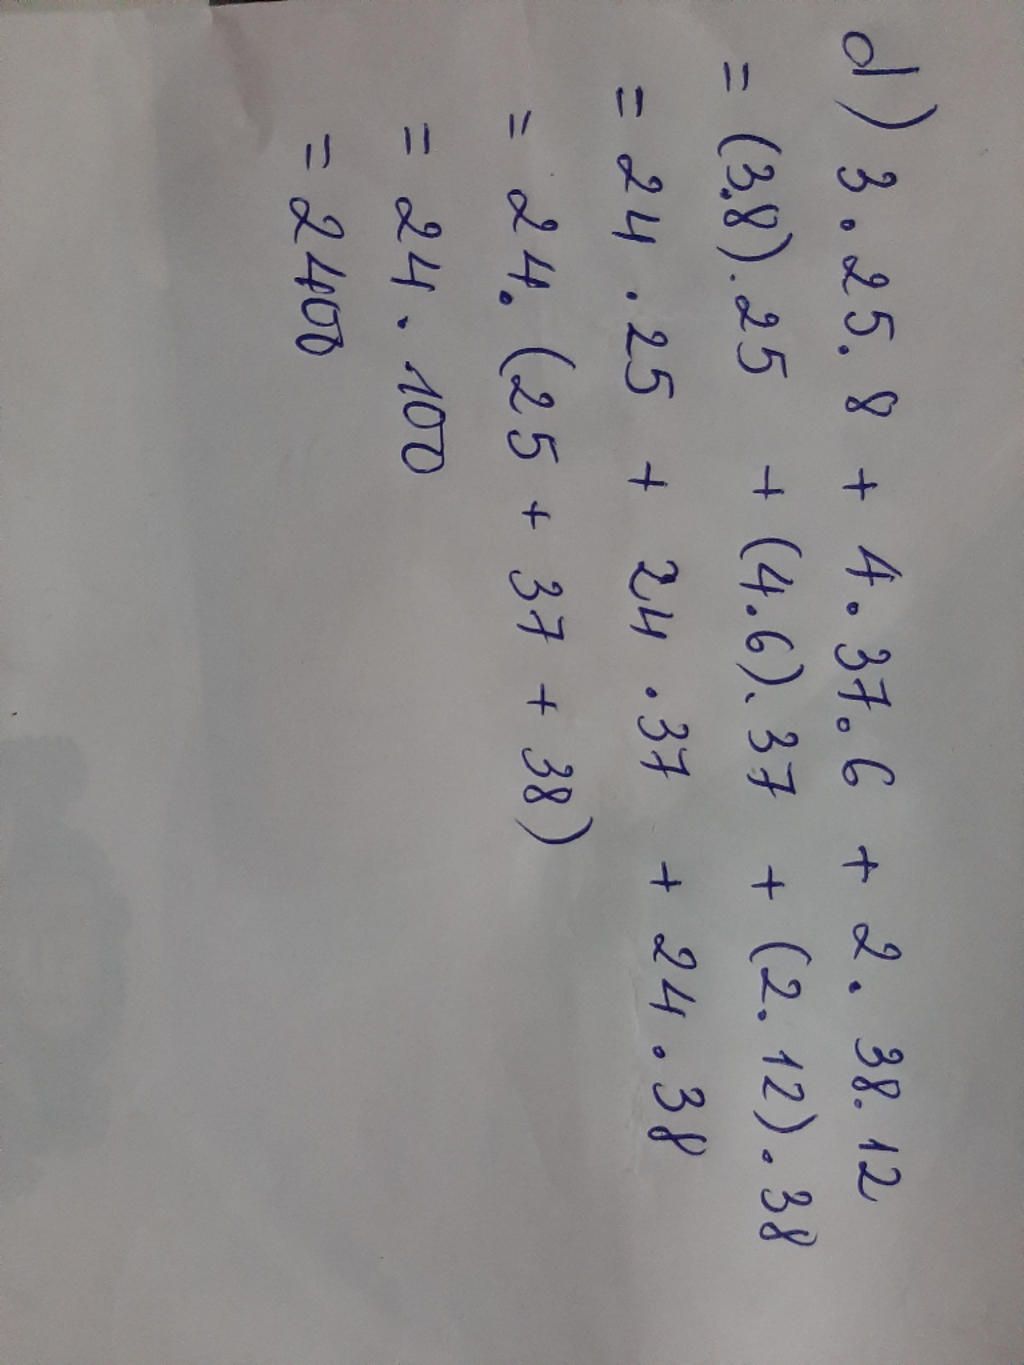 d) 3.25.8 + 4.37.6 + 2.38.12
= (3.8).25 + (4.6).37 + (2.12).38
= 24.25 + 24.37 + 24.38
= 24.(25 + 37 + 38)
= 24.100
= 2400